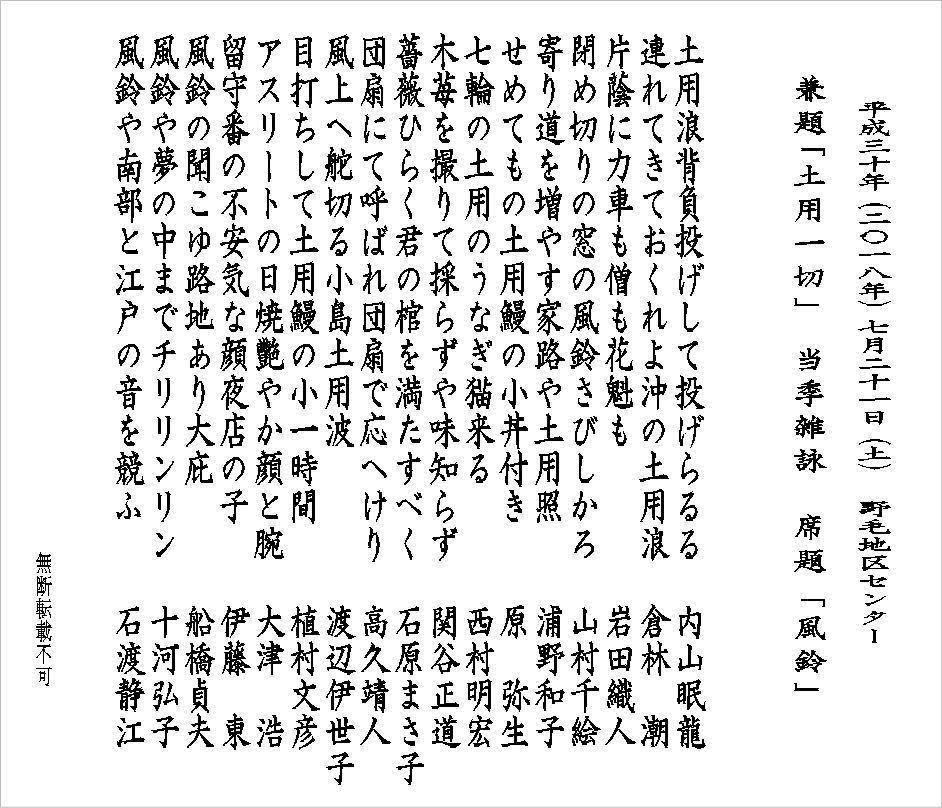 平成三十年(二〇一八年)七月二十一日(土) 野毛地区センター
兼題「土用一切」 当季雑詠 席題「風鈴」
土用浪背負投げして投げらるる 内山眠龍
連れてきておくれよ沖の土用浪 倉林 潮
片蔭に力車も僧も花魁も 岩田織人
閉め切りの窓の風鈴さびしかろ 山村千絵
寄り道を増やす家路や土用照 浦野和子
せめてもの土用鰻の小丼付き 原 弥生
七輪の土用のうなぎ猫来る 西村明宏
木苺を撮りて採らずや味知らず 関谷正道
薔薇ひらく君の棺を満たすべく 石原まさ子
団扇にて呼ばれ団扇で応へけり 高久靖人
風上へ舵切る小島土用波 渡辺伊世子
目打ちして土用鰻の小一時間 植村文彦
アスリートの日焼艶やか顔と腕 大津 浩
留守番の不安気な顔夜店の子 伊藤 東
風鈴の聞こゆ路地あり大庇 船橋貞夫
風鈴や夢の中までチリリンリン 十河弘子
風鈴や南部と江戸の音を競ふ 石渡静江
無断転載不可